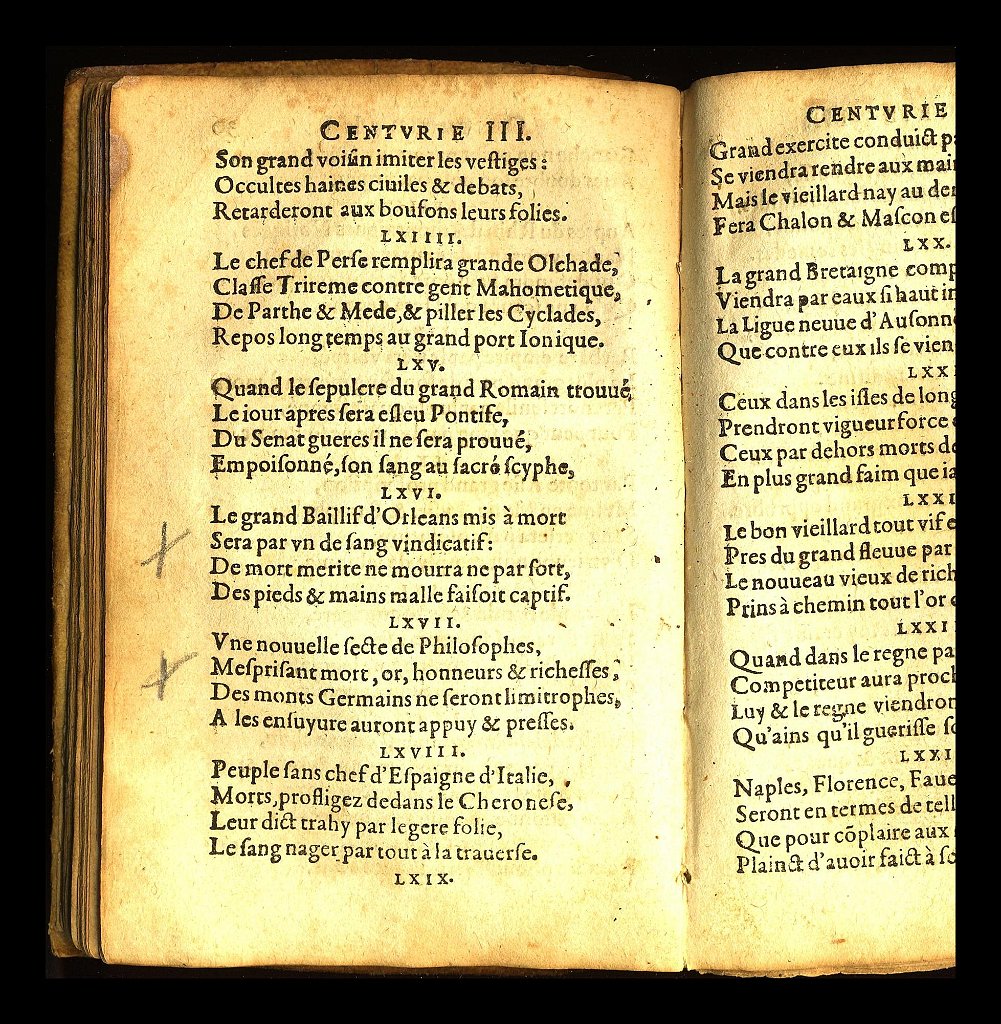 CENTVRIE III.
Son grand voiſin imiter les veſtiges:
Occultes haines ciuiles & debats,
Retarderont aux boufons leurs folies.
LXIIII.
Le chef de Perſe remplira grande Olchade,
Claſſe Trireme contre gent Mahometique,
De Parthe & Mede, & piller les Cyclades,
Repos long temps au grand port Ionique.
LXV.
Quand le ſepulcre du grand Romain trouué,
Le iour apres ſera eſleu Pontife,
Du Senat gueres il ne ſera prouué,
Empoiſonné, ſon ſang au ſacré ſcyphe,
LXVI.
Le grand Baillif d'Orleans mis à mort
Sera par vn de ſang vindicatif:
De mort merite ne mourra ne par ſort,
Des pieds & mains malle faiſoit captif.
LXVII.
Vne nouuelle ſecte de Philoſophes,
Meſpriſant mort, or, honneurs & richeſſes,
Des monts Germains ne ſeront limitrophes,
A les enſuyure auront appuy & preſſes.
LXVIII.
Peuple ſans chef d'Eſpaigne d'Italie,
Morts, profligez dedans le Cheroneſe,
Leur dict trahy par legere folie,
Le ſang nager par tout à la trauerſe.
LXIX.
CENTVRIE
Grand exercite conduict
Se viendra rendre aux
Mais le vieillard nay au
Fera Chalon & Maſcon
LXX.
La grand Bretaigne
Viendra par eaux ſi haut
La Ligue neuue d'
Que contre eux ils ſe
LXXI
Ceux dans les iſles de
Prendront vigueur force
Ceux par dehors morts
En plus grand faim que
LXXI
Le bon vieillard tout vif
Pres du grand fleuue par
Le nouueau vieux de
Prins à chemin tout l'or
LXXI
Quand dans le regne
Competiteur aura
Luy & le regne
Qu'ains qu'il gueriſſe
LXXI
Naples, Florence,
Seront en termes de
Que pour cõplaire aux
Plainct d'auoir faict à